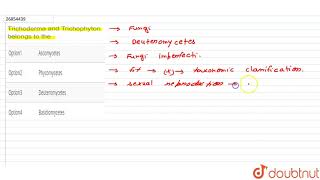 26854439
Trichoderma and Trichophyton
belongs to the :
Option1 Ascomycetes
Option2 Phycomycetes
Option3 Deuteromycetes
Option4 Basidiomycetes
→ Fungi
→ Deuteromycetes
→ Fungi Imperfecti.
→ fit → (x) → taxonomic classification.
→ sexual reproduction →
doubtnut